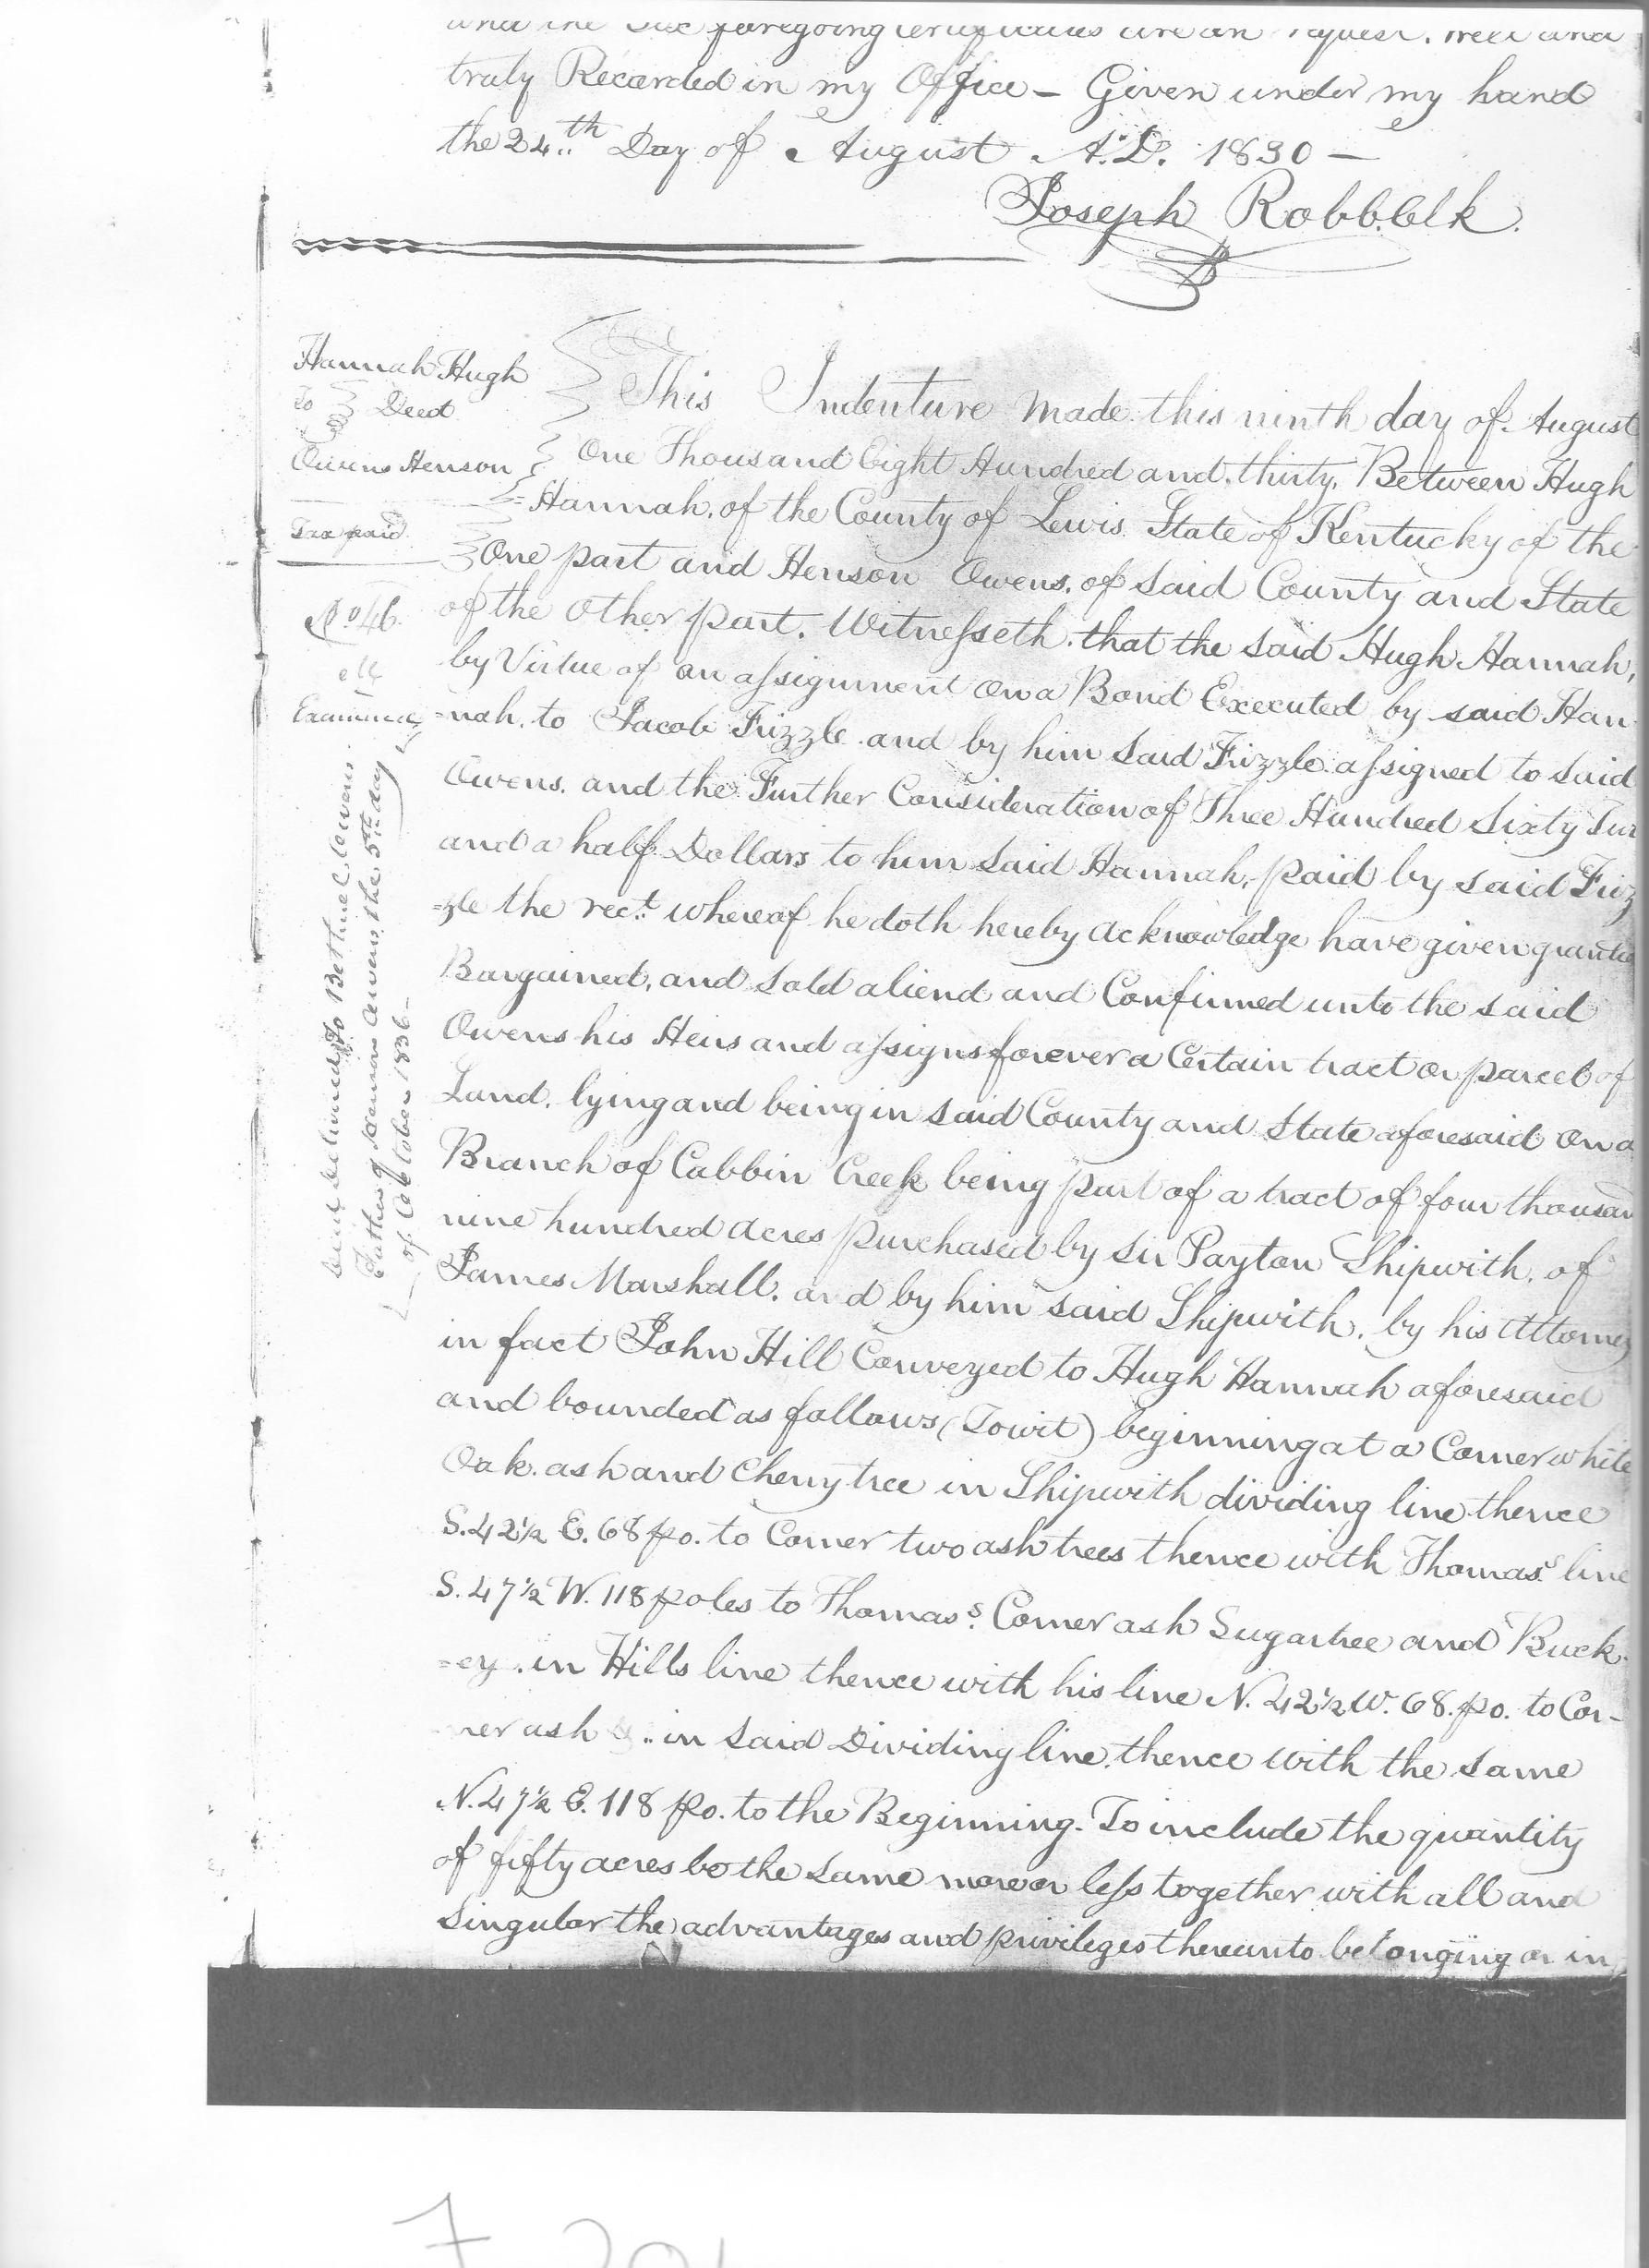 and the Six foregoing certificates are on request. well and
truly Recorded in my Office – Given under my hand
the 24.th Day of August A.D. 1830 –
Joseph Robb. Clk.
Hannah Hugh
To Deed
Owens Henson
Tax paid
No 46.
Examined
to Bethuel Owens
Father of Henson Owens, the 5th day
of October 1836 –
This Indenture Made this ninth day of August
One Thousand Eight Hundred and thirty. Between Hugh
=Hannah. of the County of Lewis State of Kentucky of the
One part and Henson Owens. of Said County and State
of the Other part. Witnesseth. that the said Hugh Hannah,
by Virtue of an assignment on a Bond Executed by said Han
=nah. to Jacob Frizzle and by him Said Frizzle assigned to Said
Owens. and the Further Consideration of Three Hundred Sixty
and a half Dollars to him Said Hannah, paid by Said Friz
=zle the rect. whereof he doth hereby acknowledge have given granted
Bargained, and Sold aliend and Confirmed unto the said
Owens his Heirs and assigns forever a Certain tract or parcel of
Land. lying and being in Said County and State aforesaid On a
Branch of Cabbin Creek being part of a tract of four thousan
nine hundred acres purchased by Sir Payton Skipwith. of
James Marshall. and by him Said Skipwith. by his Attorney
in fact John Hill Conveyed to Hugh Hannah aforesaid
and bounded as follows (Towit) beginning at a Corner white
Oak. ash and Cherry tree in Skipwith dividing line thence
S. 42½ E. 68 po. to Corner two ash trees thence with Thomas.s line
S. 47½ W. 118 poles to Thomas s. Corner ash Sugartree and Buck
=ey. in Hills line thence with his line N. 42½ W. 68. po. to Cor-
ner ash in Said Dividing line. thence with the Same
N. 47½ E. 118 po. to the Beginning. To include the quantity
of fifty acres be the Same more or less together with all and
Singular the advantages and privileges thereunto belonging or in